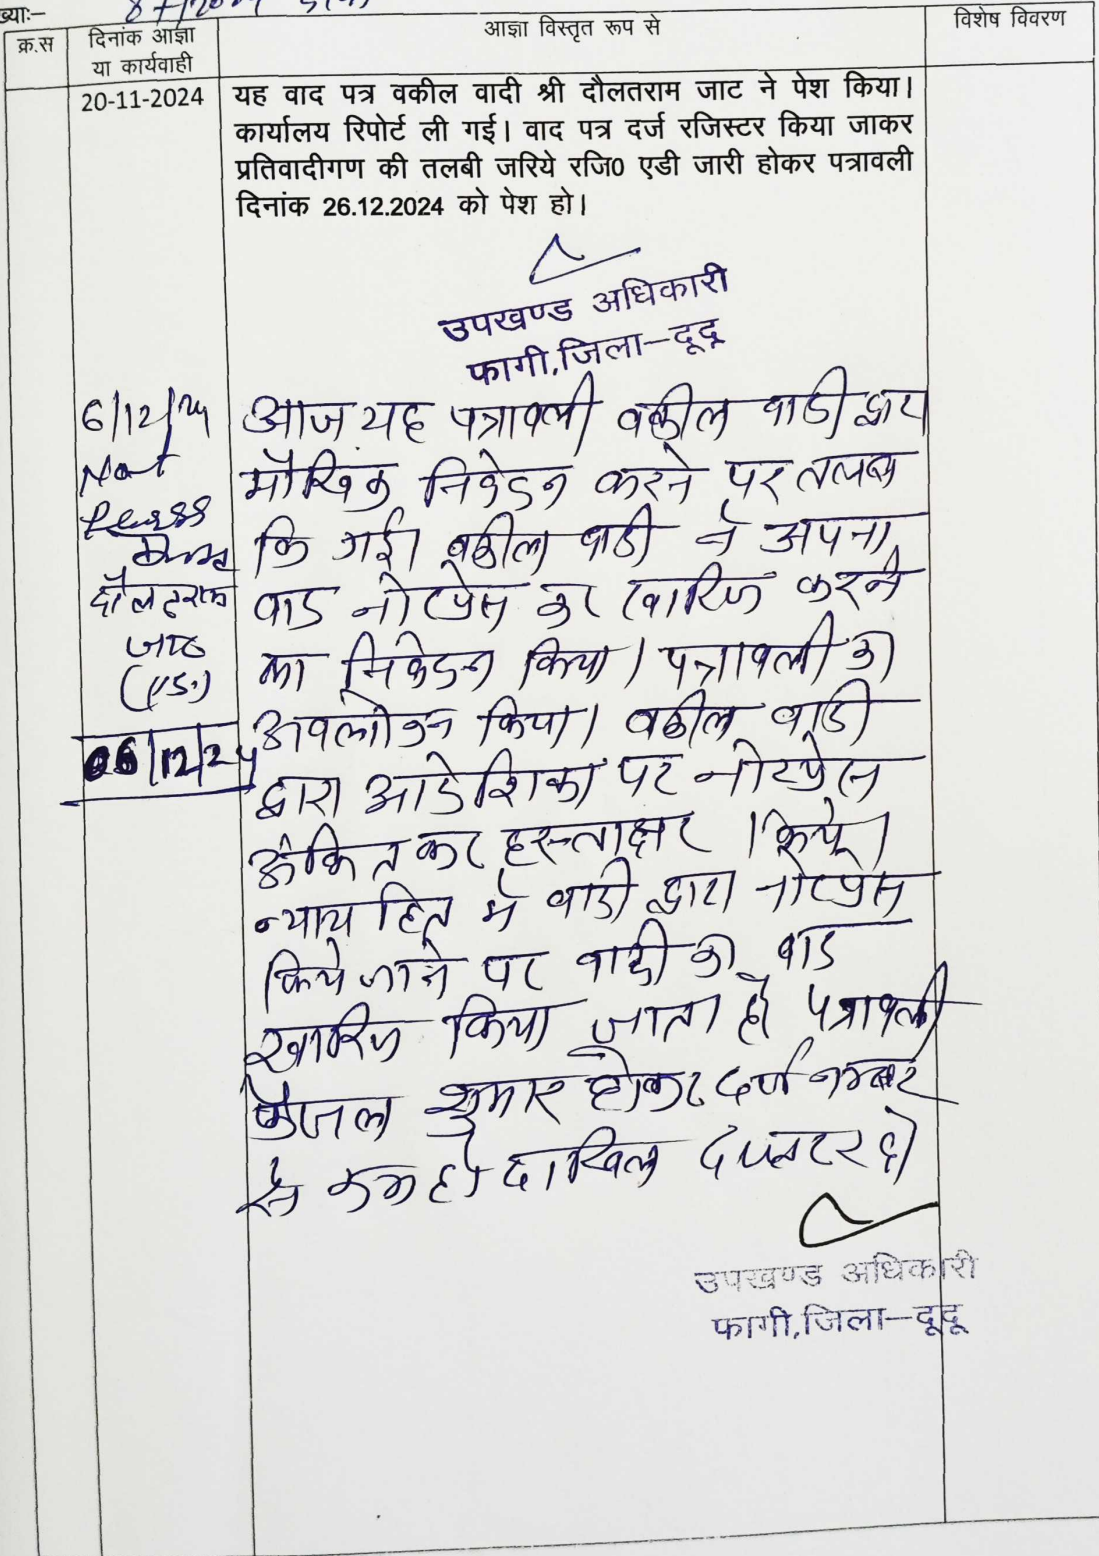 ख्याः–
क्र.स
दिनांक आज्ञा
या कार्यवाही
आज्ञा विस्तृत रूप से
विशेष विवरण
20-11-2024
यह वाद पत्र वकील वादी श्री दौलतराम जाट ने पेश किया।
कार्यालय रिपोर्ट ली गई। वाद पत्र दर्ज रजिस्टर किया जाकर
प्रतिवादीगण की तलबी जरिये रजि0 एडी जारी होकर पत्रावली
दिनांक 26.12.2024 को पेश हो।
उपखण्ड अधिकारी
फागी,जिला–दूदू
6/12/24
Not
Press
दौलतराम
जाट
(एड.)
06/12/24
आज यह पत्रावली वकील वादी द्वारा
मौखिक निवेदन करने पर तलब
कि गई। वकील वादी ने अपना
वाद नोटप्रेस कर खारिज करने
का निवेदन किया। पत्रावली का
अवलोकन किया। वकील वादी
द्वारा आदेशिका पर नोटप्रेस
अंकित कर हस्ताक्षर किये।
न्याय हित में वादी द्वारा नोटप्रेस
किये जाने पर वादी का वाद
खारिज किया जाता है। पत्रावली
फैजल शुमार होकर दर्ज नम्बर
से कम हो दाखिल दफ्तर हो
उपखण्ड अधिकारी
फागी,जिला–दूदू